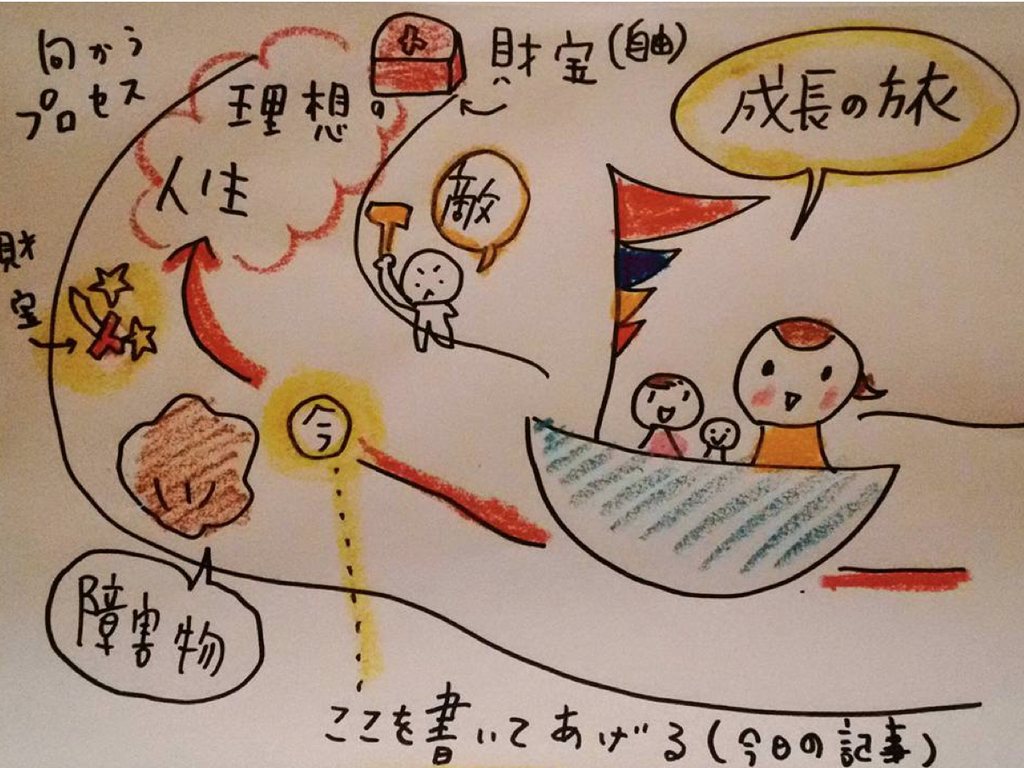 向かう
プロセス
理想の
人生
財宝(自由)
成長の旅
敵
財
宝
今
障害物
ここを書いてあげる(今日の記事)